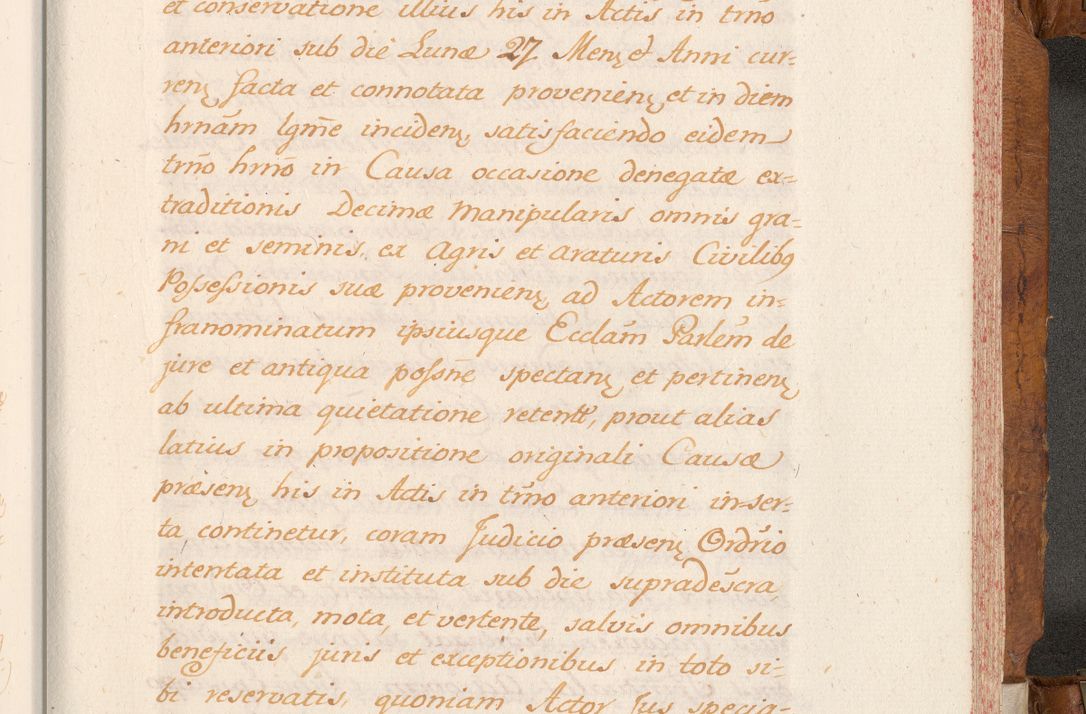 et conservatione illius his in Actis in trño
anteriori sub die Lunæ 27 Menș et Anni cur=
renș facta et connotata provenienș et in diem
hrnam lgme incidenș, satisfaciendo eidem
trño hrño in Causa occasione denegatæ ex=
traditionis Decimæ Manipularis omnis gra=
ni et seminis, ex Agris et Araturis Civilibș
Possessionis suæ provenienș, ad Actorem in=
franominatum ipsiusque Ecclam Parlem de
jure et antiqua possñe spectanș et pertinenș
ab ultima quietatione retentæ, prout alias
latius in propositione originali Causæ
præsenș his in Actis in trño anteriori in=ser=
ta continetur, coram Judicio præsenș Ordrio
intentata et instituta sub die supradescra,
introducta, mota, et vertente, salvis omnibus
beneficiis juris et exceptionibus in toto si=
bi reservatis, quoniam Actor Jus specia=